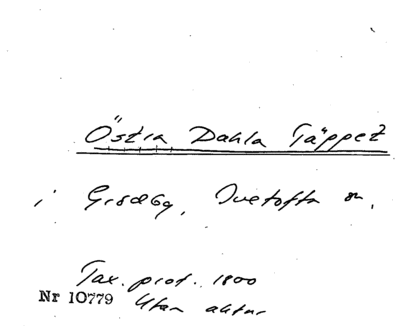 Östra Dahla Täppet
i Grödby, Ivetofta sn.
Tax. prot. 1800
Nr 10779 Utan aktnr